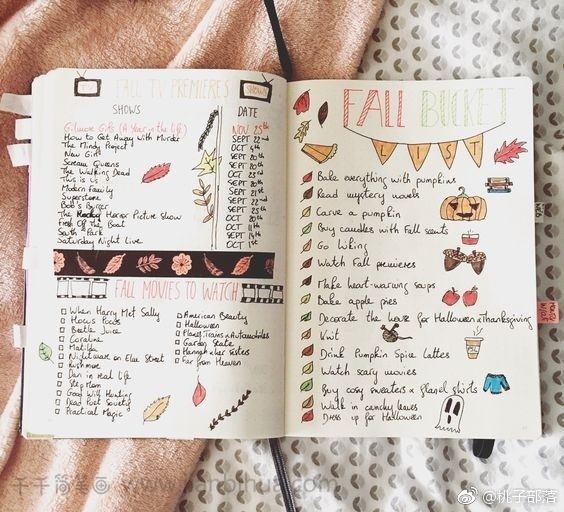 FALL TV PREMIERES
SHOWS
SHOWS
DATE
Gilmore Girls (A Year in the life)
How to Get Away with Murder
The Mindy Project
New Girl
Scream Queens
The Walking Dead
This is us
Modern Family
Superstore
Bob's Burger
The Rocky Horror Picture Show
Fresh Off the Boat
South Park
Saturday Night Live
NOV 25th
SEPT 22nd
OCT 4th
SEPT 20th
SEPT 20th
OCT 23rd
SEPT 20th
SEPT 21st
SEPT 22nd
SEPT 25th
OCT 20th
OCT 11th
SEPT 14th
OCT 1st
FALL MOVIES TO WATCH
When Harry Met Sally
Hocus Pocus
Beetle Juice
Coraline
Matilda
Nightmare on Elm Street
Rushmore
Dan in real life
Step Mom
Good Will Hunting
Dead Poet Society
Practical Magic
American Beauty
Halloween
Planes, Trains & Automobiles
Garden State
Hannah & her Sisters
Far from Heaven
FALL BUCKET
LIST
Bake everything with pumpkins
Read mystery novels
Carve a pumpkin
Buy candles with Fall scents
Go hiking
Watch Fall premieres
Make heart-warming soups
Bake apple pies
Decorate the house for Halloween & Thanksgiving
Knit
Drink Pumpkin Spice Lattes
Watch scary movies
Buy cosy sweaters & flanel shirts
Walk in crunchy leaves
Dress up for Halloween
千千简笔画
@桃子部落